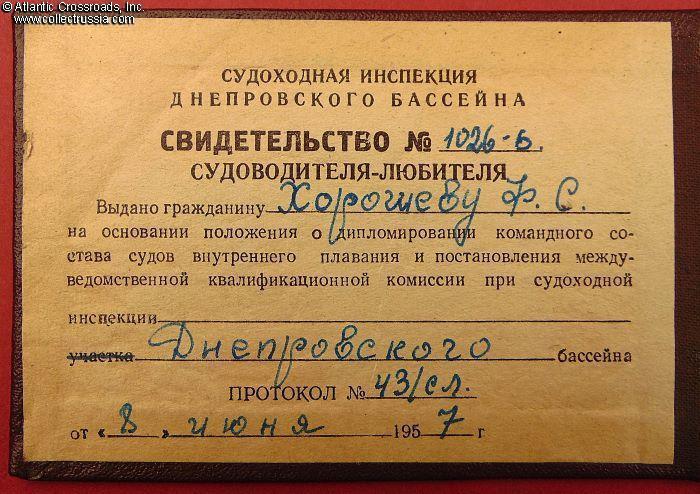 © Atlantic Crossroads, Inc.
www.collectrussia.com
СУДОХОДНАЯ ИНСПЕКЦИЯ
ДНЕПРОВСКОГО БАССЕЙНА
СВИДЕТЕЛЬСТВО № 1026-Б.
СУДОВОДИТЕЛЯ-ЛЮБИТЕЛЯ
Выдано гражданину Хорошеву Ф. С.
на основании положения о дипломировании командного со-
става судов внутреннего плавания и постановления между-
ведомственной квалификационной комиссии при судоходной
инспекции
участка Днепровского бассейна
ПРОТОКОЛ № 43/сл.
от « 8 » июня 1957 г